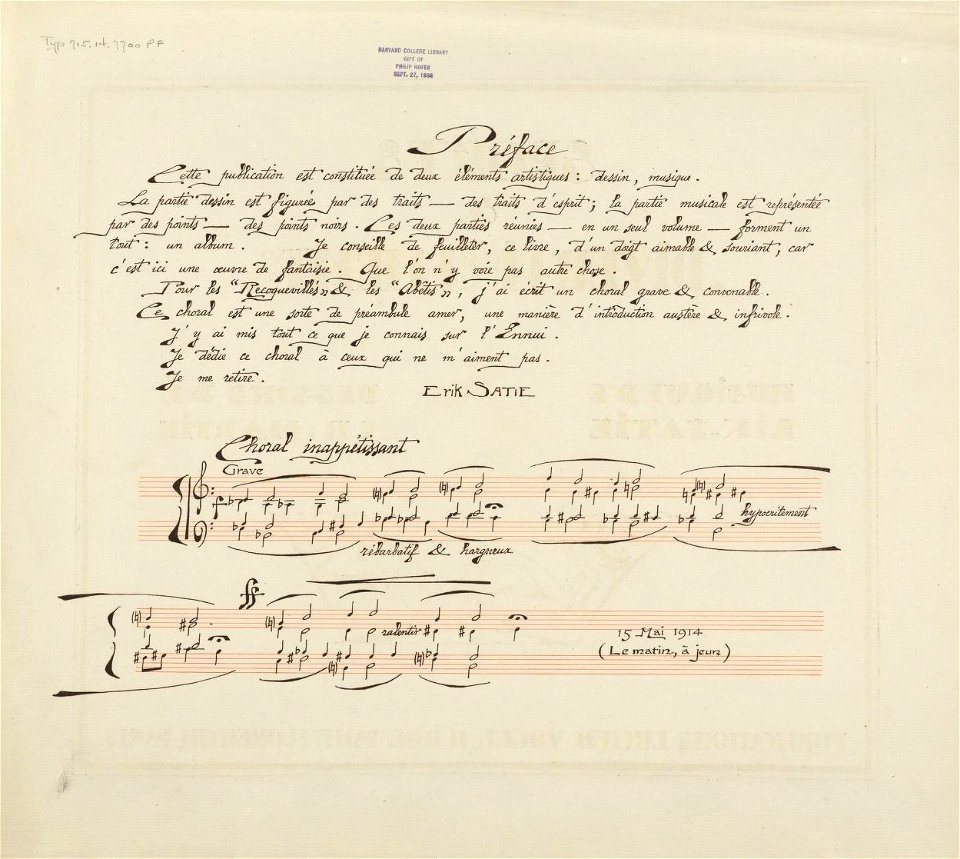 Typ 915.14.7700 PF
HARVARD COLLEGE LIBRARY
GIFT OF
PHILIP HOFER
SEPT. 27, 19
Préface
Cette publication est constituée de deux éléments artistiques : dessin, musique.
La partie dessin est figurée par des traits — des traits d'esprit ; la partie musicale est représentée
par des points — des points noirs. Ces deux parties réunies — en un seul volume — forment un
tout : un album. Je conseille de feuilleter, ce livre, d'un doigt aimable & souriant, car
c'est ici une œuvre de fantaisie. Que l'on n'y voie pas autre chose.
Pour les "Recoquevillés" & les "Abêtis", j'ai écrit un choral grave & convenable.
Ce choral est une sorte de préambule amer, une manière d'introduction austère & infrivole.
J'y ai mis tout ce que je connais sur l'Ennui.
Je dédie ce choral à ceux qui ne m'aiment pas.
Je me retire.
Erik SATIE
Choral inappétissant
Grave
f
hypocritement
rébarbatif & hargneux
ff
ralentir
15 Mai 1914
(Le matin, à jeun)